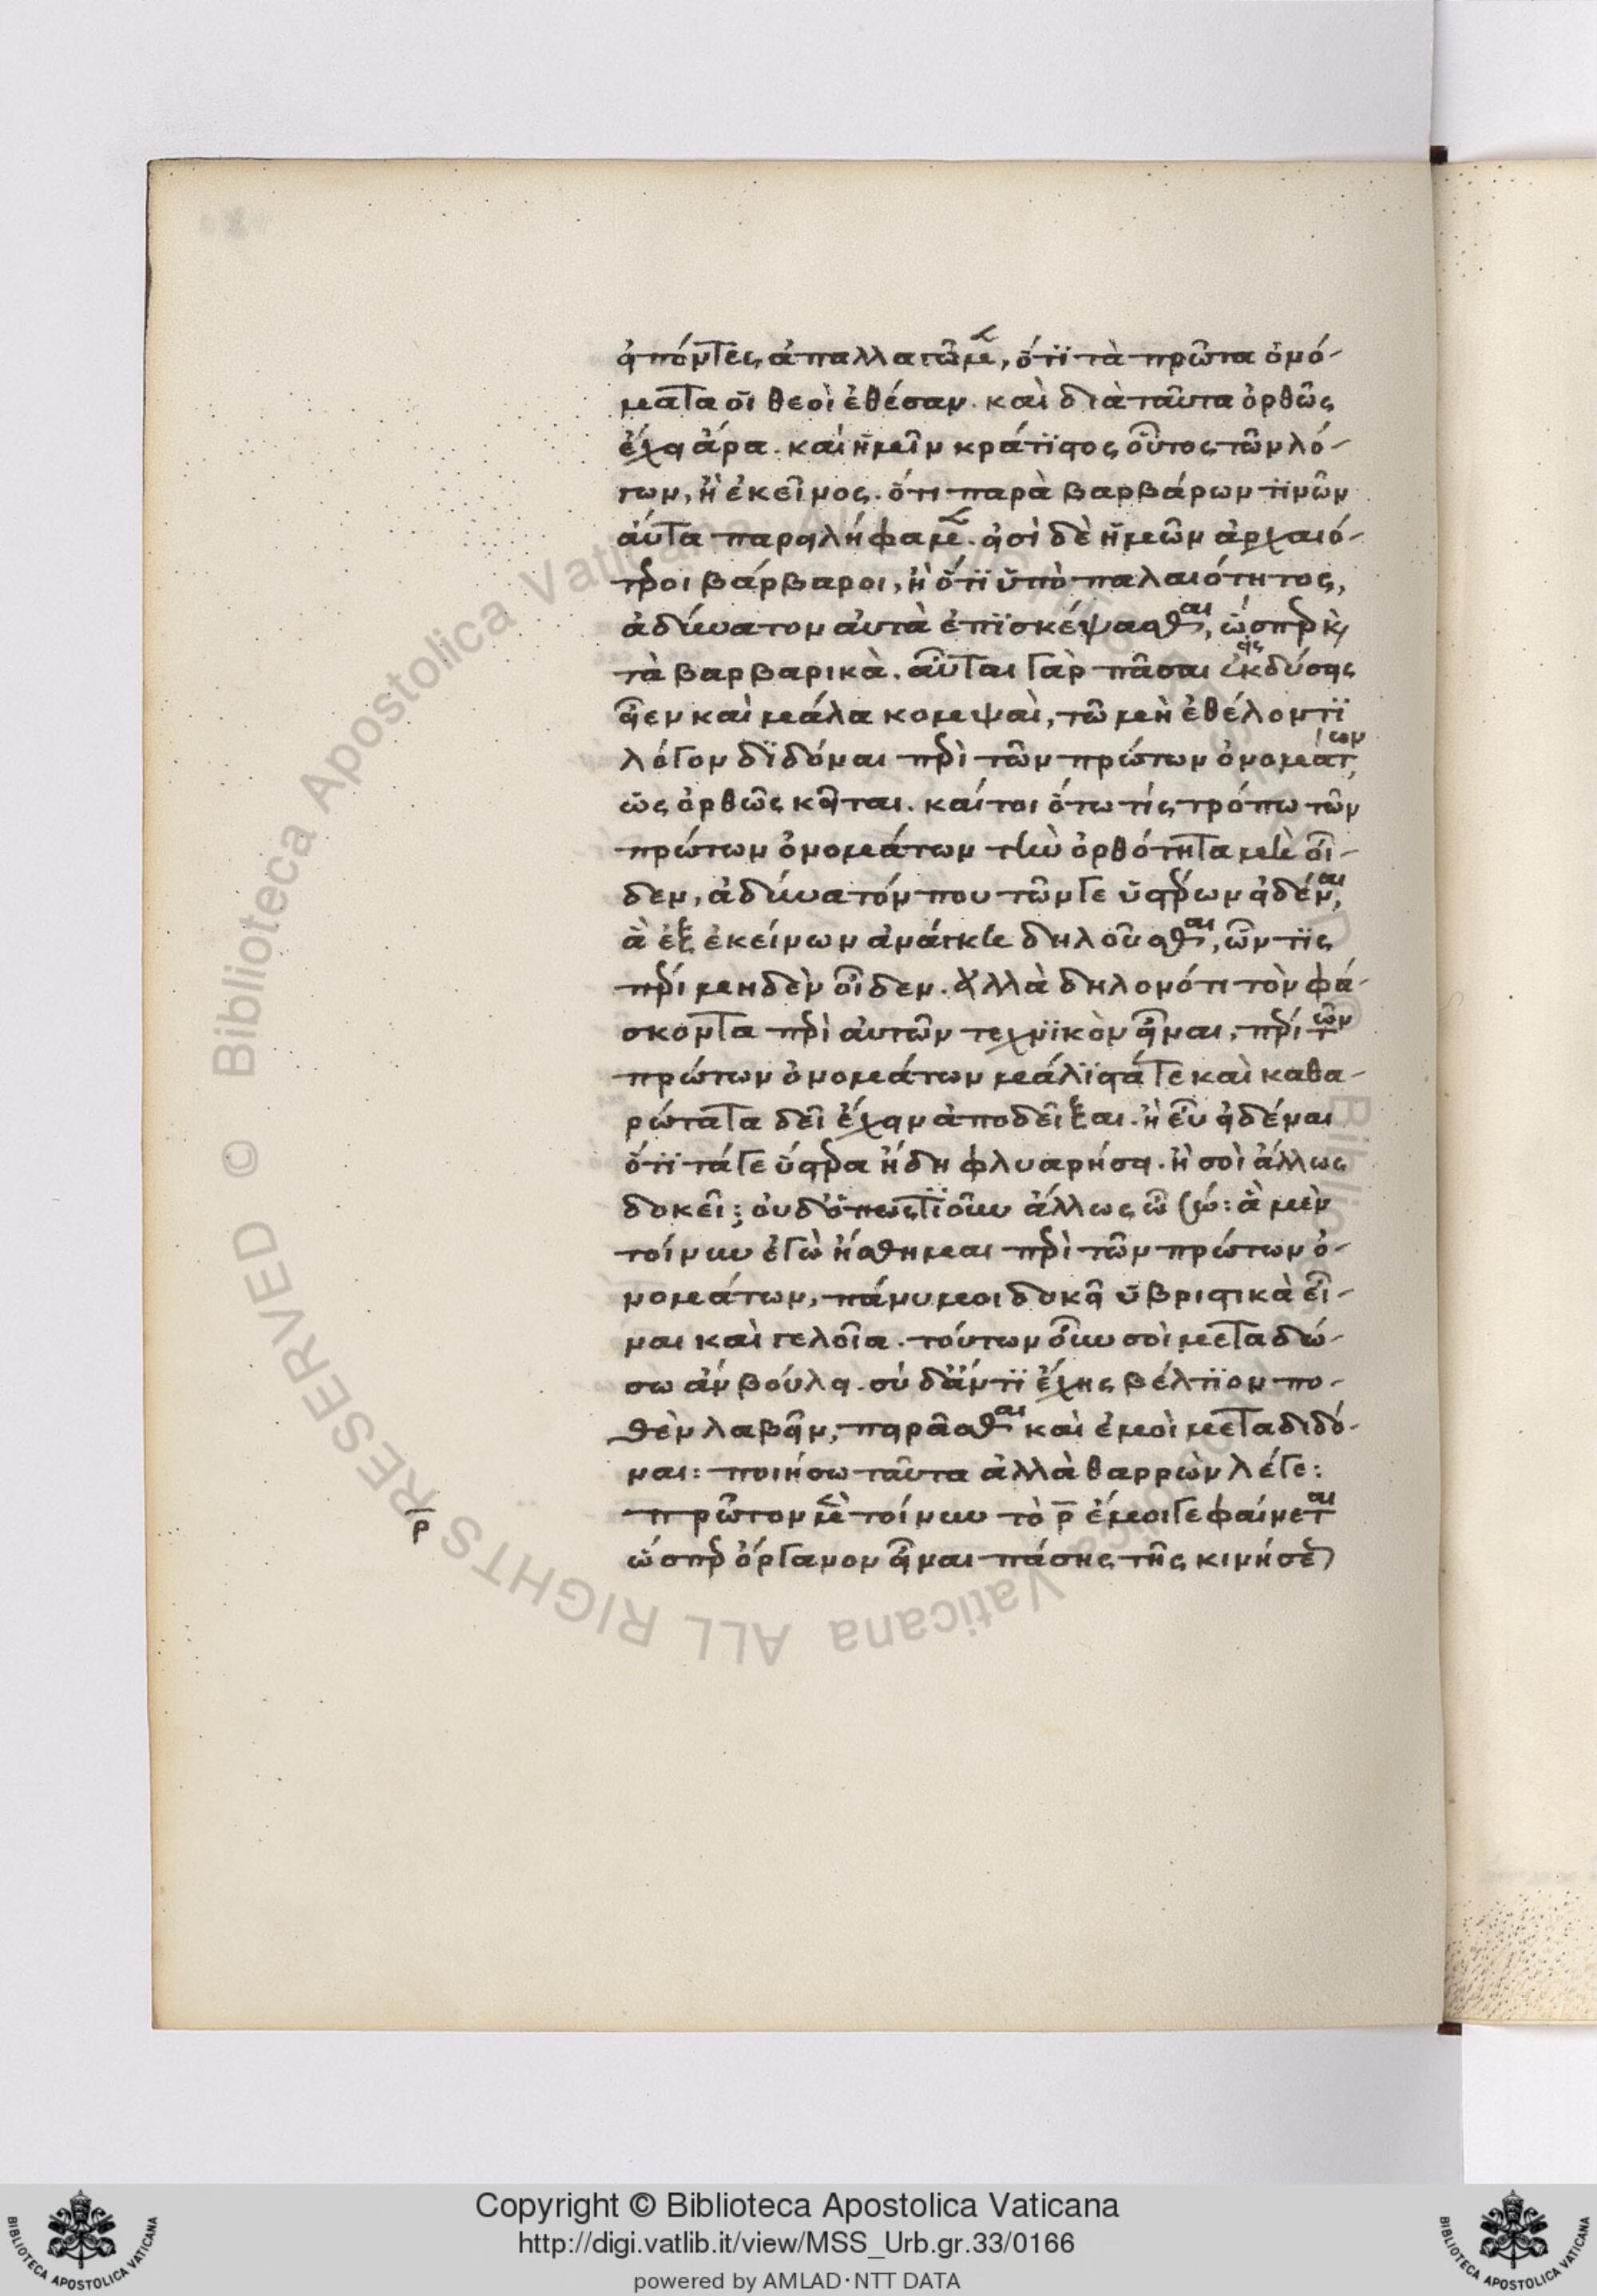 εἰπόντες ἀπαλλαγῶμεν, ὅτι τὰ πρῶτα ὀνό-
ματα οἱ θεοὶ ἔθεσαν. καὶ διὰ ταῦτα ὀρθῶς
ἔχει ἆρα. καὶ ἡμῖν κράτιστος οὗτος τῶν λό-
γων, ἢ ἐκεῖνος. ὅτι παρὰ βαρβάρων τινῶν
αὐτὰ παρειλήφαμεν. εἰσὶ δὲ ἡμῶν ἀρχαιό-
τεροι βάρβαροι, ἢ ὅτι ὑπὸ παλαιότητος,
ἀδύνατον αὐτὰ ἐπισκέψασθαι, ὥσπερ καὶ
τὰ βαρβαρικὰ. αὗται γὰρ πᾶσαι ἐκδύσεις
εἶεν καὶ μάλα κομψαὶ, τῶ μὴ ἐθέλοντι
λόγον διδόναι περὶ τῶν πρώτων ὀνομάτων
ὡς ὀρθῶς κεῖται. καίτοι ὅτω τίς τρόπω τῶν
πρώτων ὀνομάτων τὴν ὀρθότητα μὴ οἶ-
δεν, ἀδύνατόν που τῶν γε ὑστέρων εἰδέναι,
ἃ ἐξ ἐκείνων ἀνάγκη δηλοῦσθαι, ὧν τις
περὶ μηδὲν οἶδεν. ἀλλὰ δηλονότι τὸν φά-
σκοντα περὶ αὐτῶν τεχνικὸν εἶναι, περὶ τῶν
πρώτων ὀνομάτων μάλιστά τε καὶ καθα-
ρώτατα δεῖ ἔχειν ἀποδεῖξαι. ἢ εὖ εἰδέναι
ὅτι τά γε ὕστερα ἤδη φλυαρήσει. ἢ σοὶ ἄλλως
δοκεῖ; οὐδ' ὁπωστιοῦν ἄλλως ὦ σώ: ἃ μὲν
τοίνυν ἐγὼ ἤσθημαι περὶ τῶν πρώτων ὀ-
νομάτων, πάνυ μοι δοκεῖ ὑβριστικὰ εἶ-
ναι καὶ γελοῖα. τούτων οὖν σοὶ μεταδώ-
σω ἂν βούλει. σὺ δ' ἄν τι ἔχης βέλτιον πο-
θὲν λαβεῖν, πειρᾶσθαι καὶ ἐμοὶ μεταδιδό-
ναι: ποιήσω ταῦτα ἀλλὰ θαρρὼν λέγε:
πρῶτον μὲν τοίνυν τὸ ρ̅ ἔμοιγε φαίνεται
ὥσπερ ὄργανον εἶναι πάσης τῆς κινήσεως
ρ̅
Copyright © Biblioteca Apostolica Vaticana
http://digi.vatlib.it/view/MSS_Urb.gr.33/0166
powered by AMLAD·NTT DATA
BIBLIOTECA APOSTOLICA VATICANA
BIBLIOTECA APOSTOLICA VATICANA
© Biblioteca Apostolica Vaticana ALL RIGHTS RESERVED